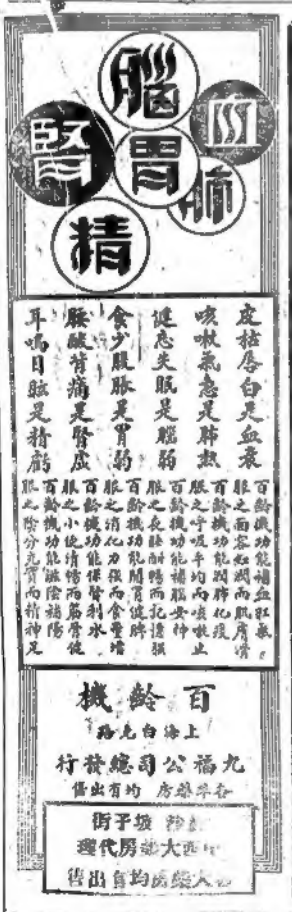 血
肺
腦
胃
腎
精
皮枯唇白是血衰
百齡機功能補血紅氣
服之面容紅潤而肌膚滑
咳嗽氣急是肺熱
百齡機功能潤肺化痰
服之呼吸平均而咳嗽止
健忘失眠是腦弱
百齡機功能補腦安神
服之長睡酣暢而記憶強
食少腹脹是胃弱
百齡機功能開胃健脾
服之消化力強而食量增
腰酸背痛是腎虛
百齡機功能保腎利水
服之小便清暢而筋骨健
耳鳴目眩是精虧
百齡機功能滋陰補陽
服之陰分充實而精神足
百齡機
上海白克路
九福公司總發行
各埠藥房均有出售
坡子街
中西大藥房代理
各大藥房均有出售